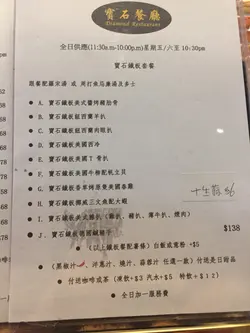 寶石餐廳
Diamond Restaurant
全日供應(11:30a.m-10:00p.m)星期五/六至 10:30pm
寶石鐵板套餐
跟餐配羅宋湯 或 周打魚忌廉湯及多士
A. 寶石鐵板美式醬烤豬肋骨
B. 寶石鐵板紐西蘭羊扒
C. 寶石鐵板紐西蘭肉眼扒
D. 寶石鐵板美國西冷
E. 寶石鐵板美國T骨扒
F. 寶石鐵板美國牛柳配帆立貝
G. 寶石鐵板香草焗原隻美國春雞
H. 寶石鐵板挪威三文魚配大蝦
I. 寶石鐵板美式雜扒 (雞扒、豬扒、薄牛扒、燒肉)
J. 寶石鐵板德國鹹豬手
$138
(以上鐵板餐配薯條) 白飯或意粉 +$5
(黑椒汁、洋蔥汁、燒汁、蒜蓉汁 任選一款) 付送是日甜品
付送咖啡或茶 (凍飲+$3 汽水+$5 特飲+$12)
全日加一服務費